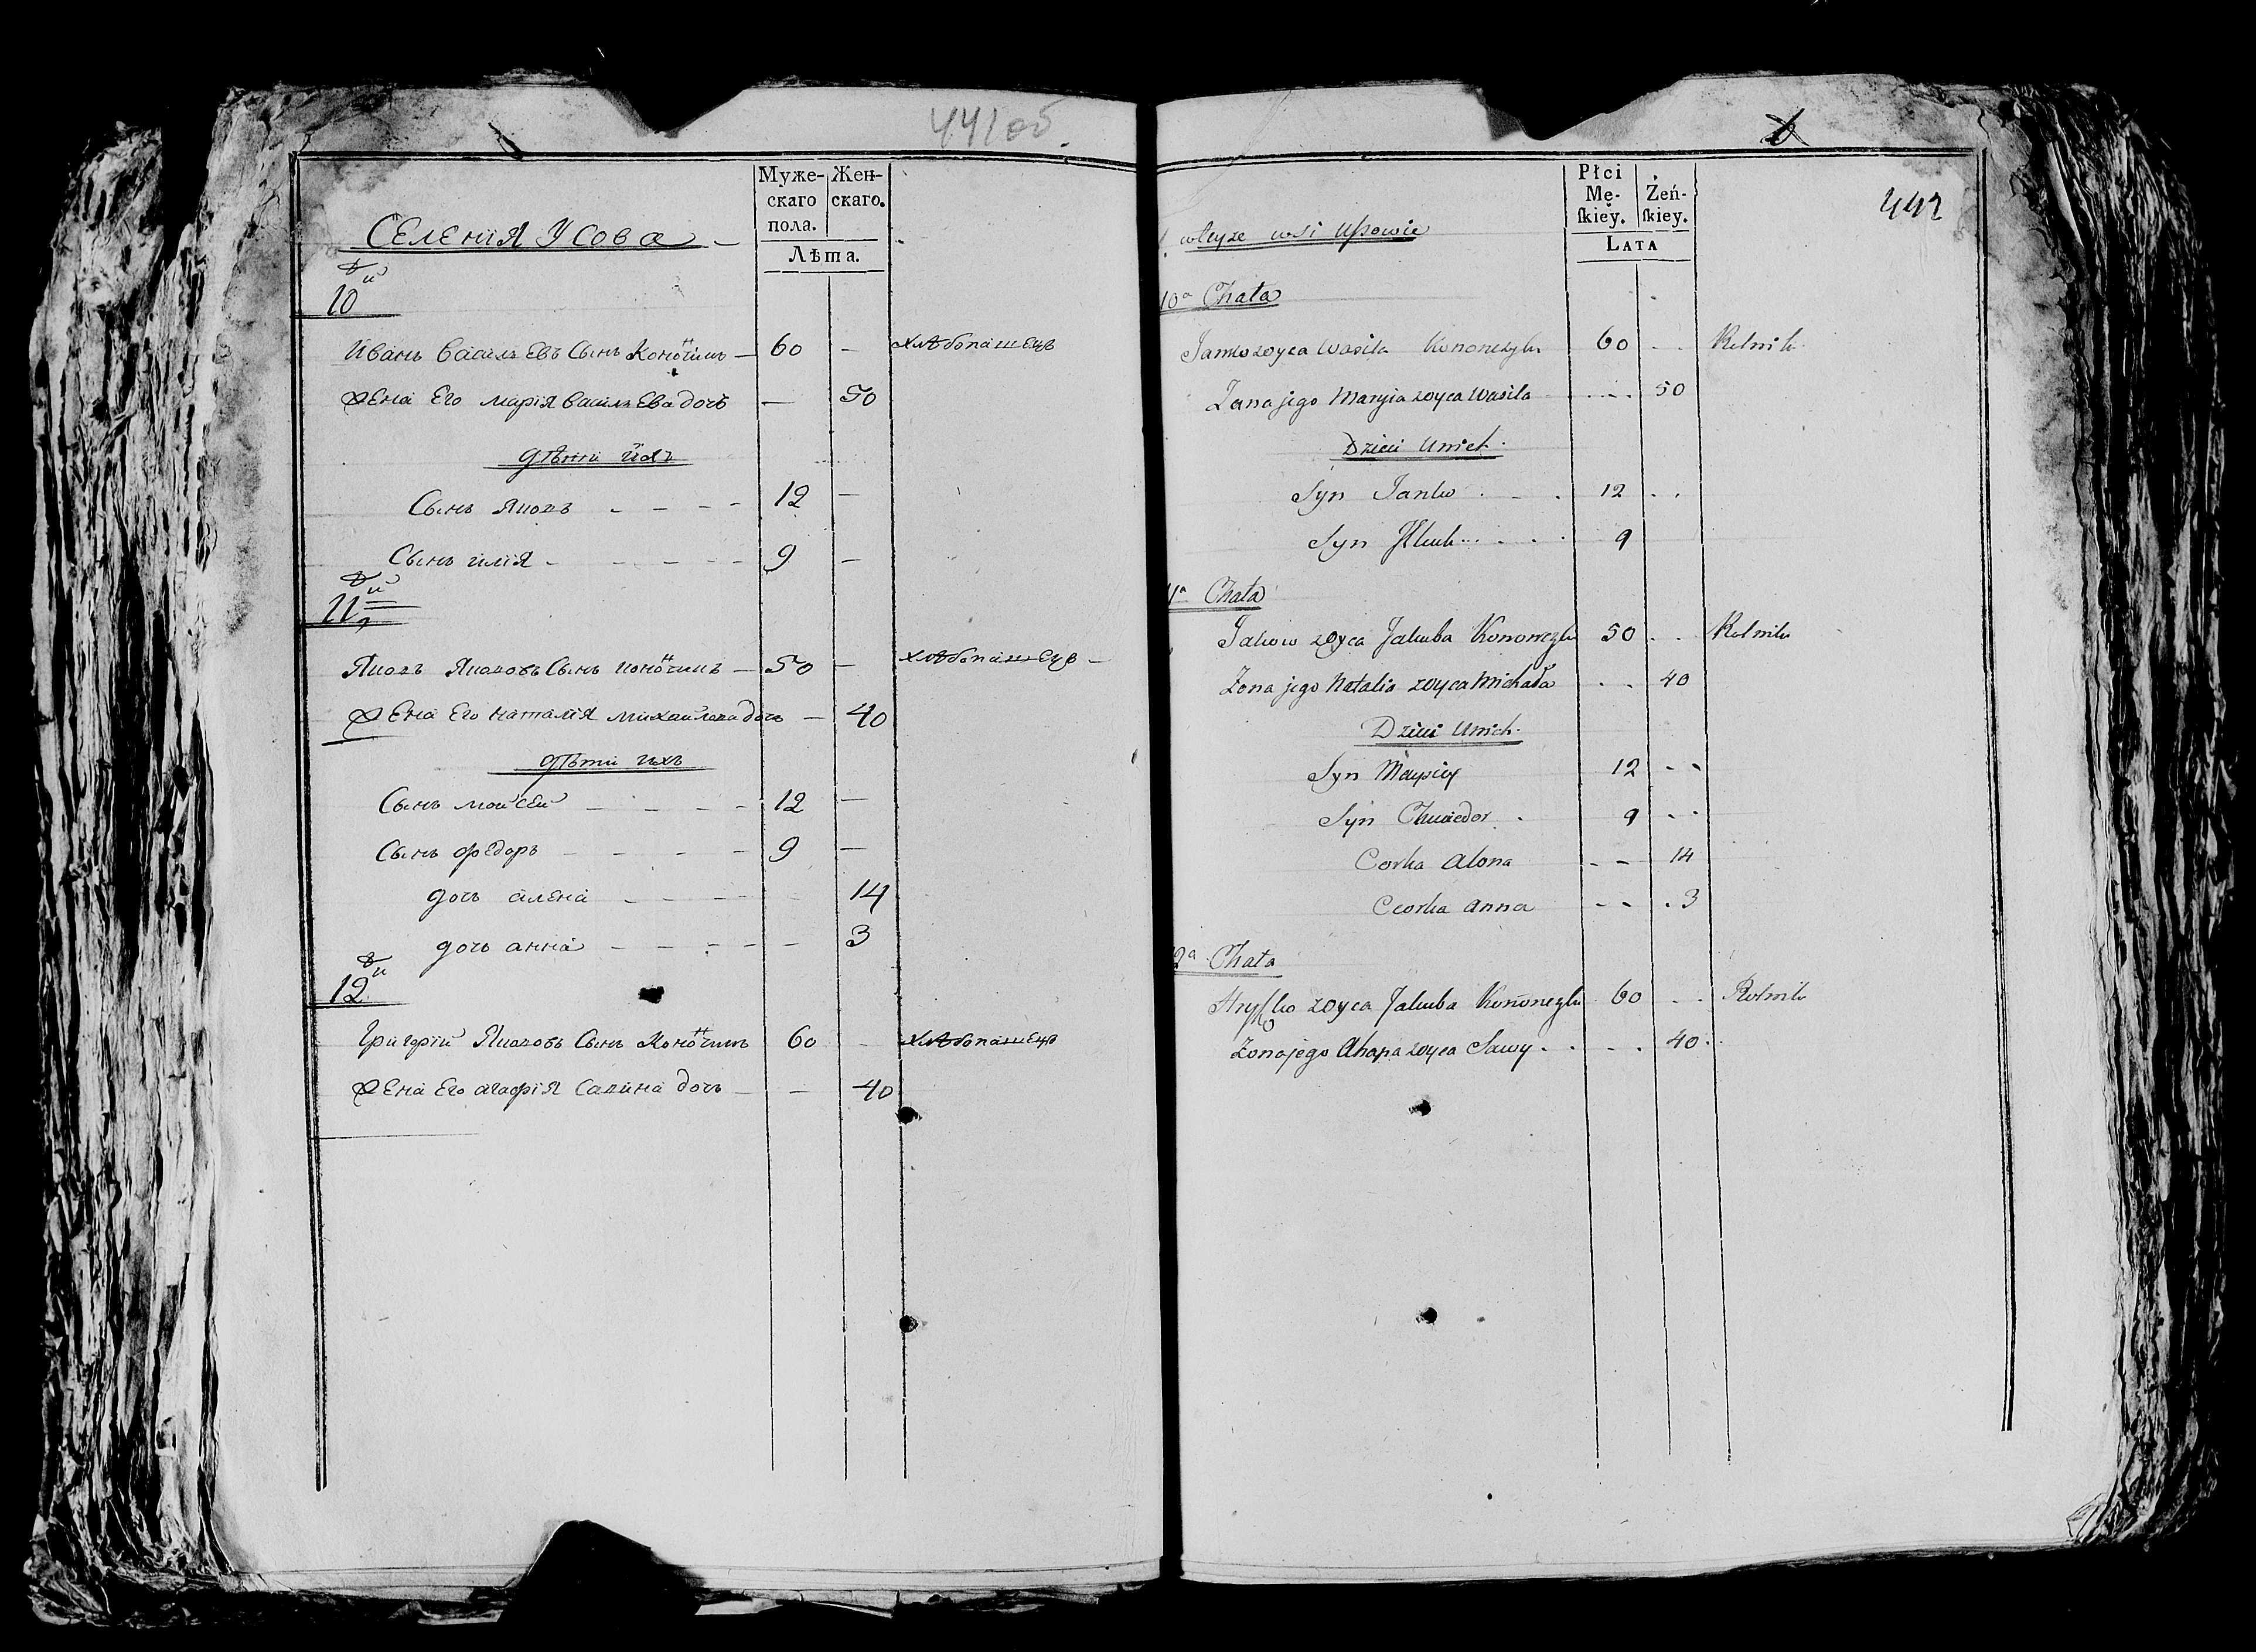 441об.
Муже-
скаго
пола.
Жен-
скаго.
Лѣта.
Селенiя Усова
10й
Иванъ Василевъ Сынъ Конончикъ — 60 —
хлѣбопашецъ
Жена Его Марiя Василева дочь — 50
дѣти ихъ
Сынъ Яковъ - - - - 12 —
Сынъ илiя - - - - - 9 —
11й
Яковъ Якововъ Сынъ Конончикъ — 50 —
хлѣбопашецъ —
Жена Его Наталiя Михаилова дочь — 40
дѣти ихъ
Сынъ Моисей - - - - 12 —
Сынъ Федоръ - - - - 9 —
дочь алена - - - - 14
дочь анна - - - - - 3
12й
Григорiй Якововъ Сынъ Конончикъ 60 —
хлѣбопашецъ
Жена Его агафiя Савина дочь — — 40
442
Płci
Mę-
ſkiey.
Żeń-
ſkiey.
LATA
wteyże wsi Usowie
10a Chata
Janko zoyca Wasila Kononczyk 60 . . Rolnik
Żona jego Maryia zoyca Wasila . . . . 50
Dzieci Unich.
Syn Janko . . . 12 . .
Syn . . . . 9
11a Chata
Jakow zoyca Jakuba Kononczyk 50 . . Rolnik
Żona jego Natalia zoyca Michała . . 40
Dzieci Unich.
Syn Maysiey 12 - -
Syn Chwiedor . 9 - -
Corka Alona - - 14
Corka Anna - - . 3
12a Chata
Hryſko zoyca Jakuba Kononczyk 60 . . Rolnik
Żona jego Ahapa zoyca Sawy . . . . 40 .